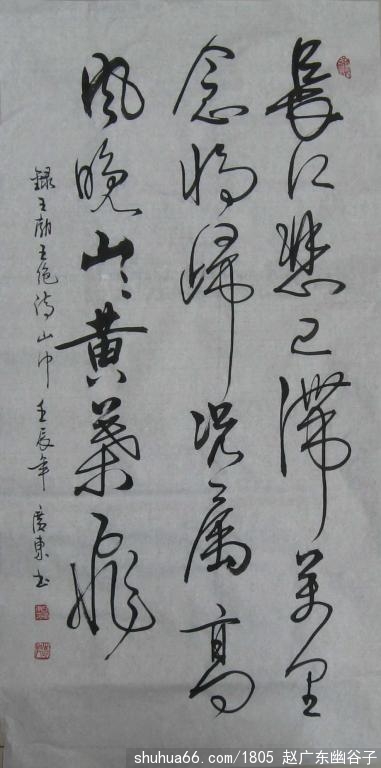 長江悲已滯萬里
念将歸况属高
風晚山〻黄葉飛
録王勃五绝诗山中 壬辰年 廣東书
shuhua66.com/1805 赵广东幽谷子